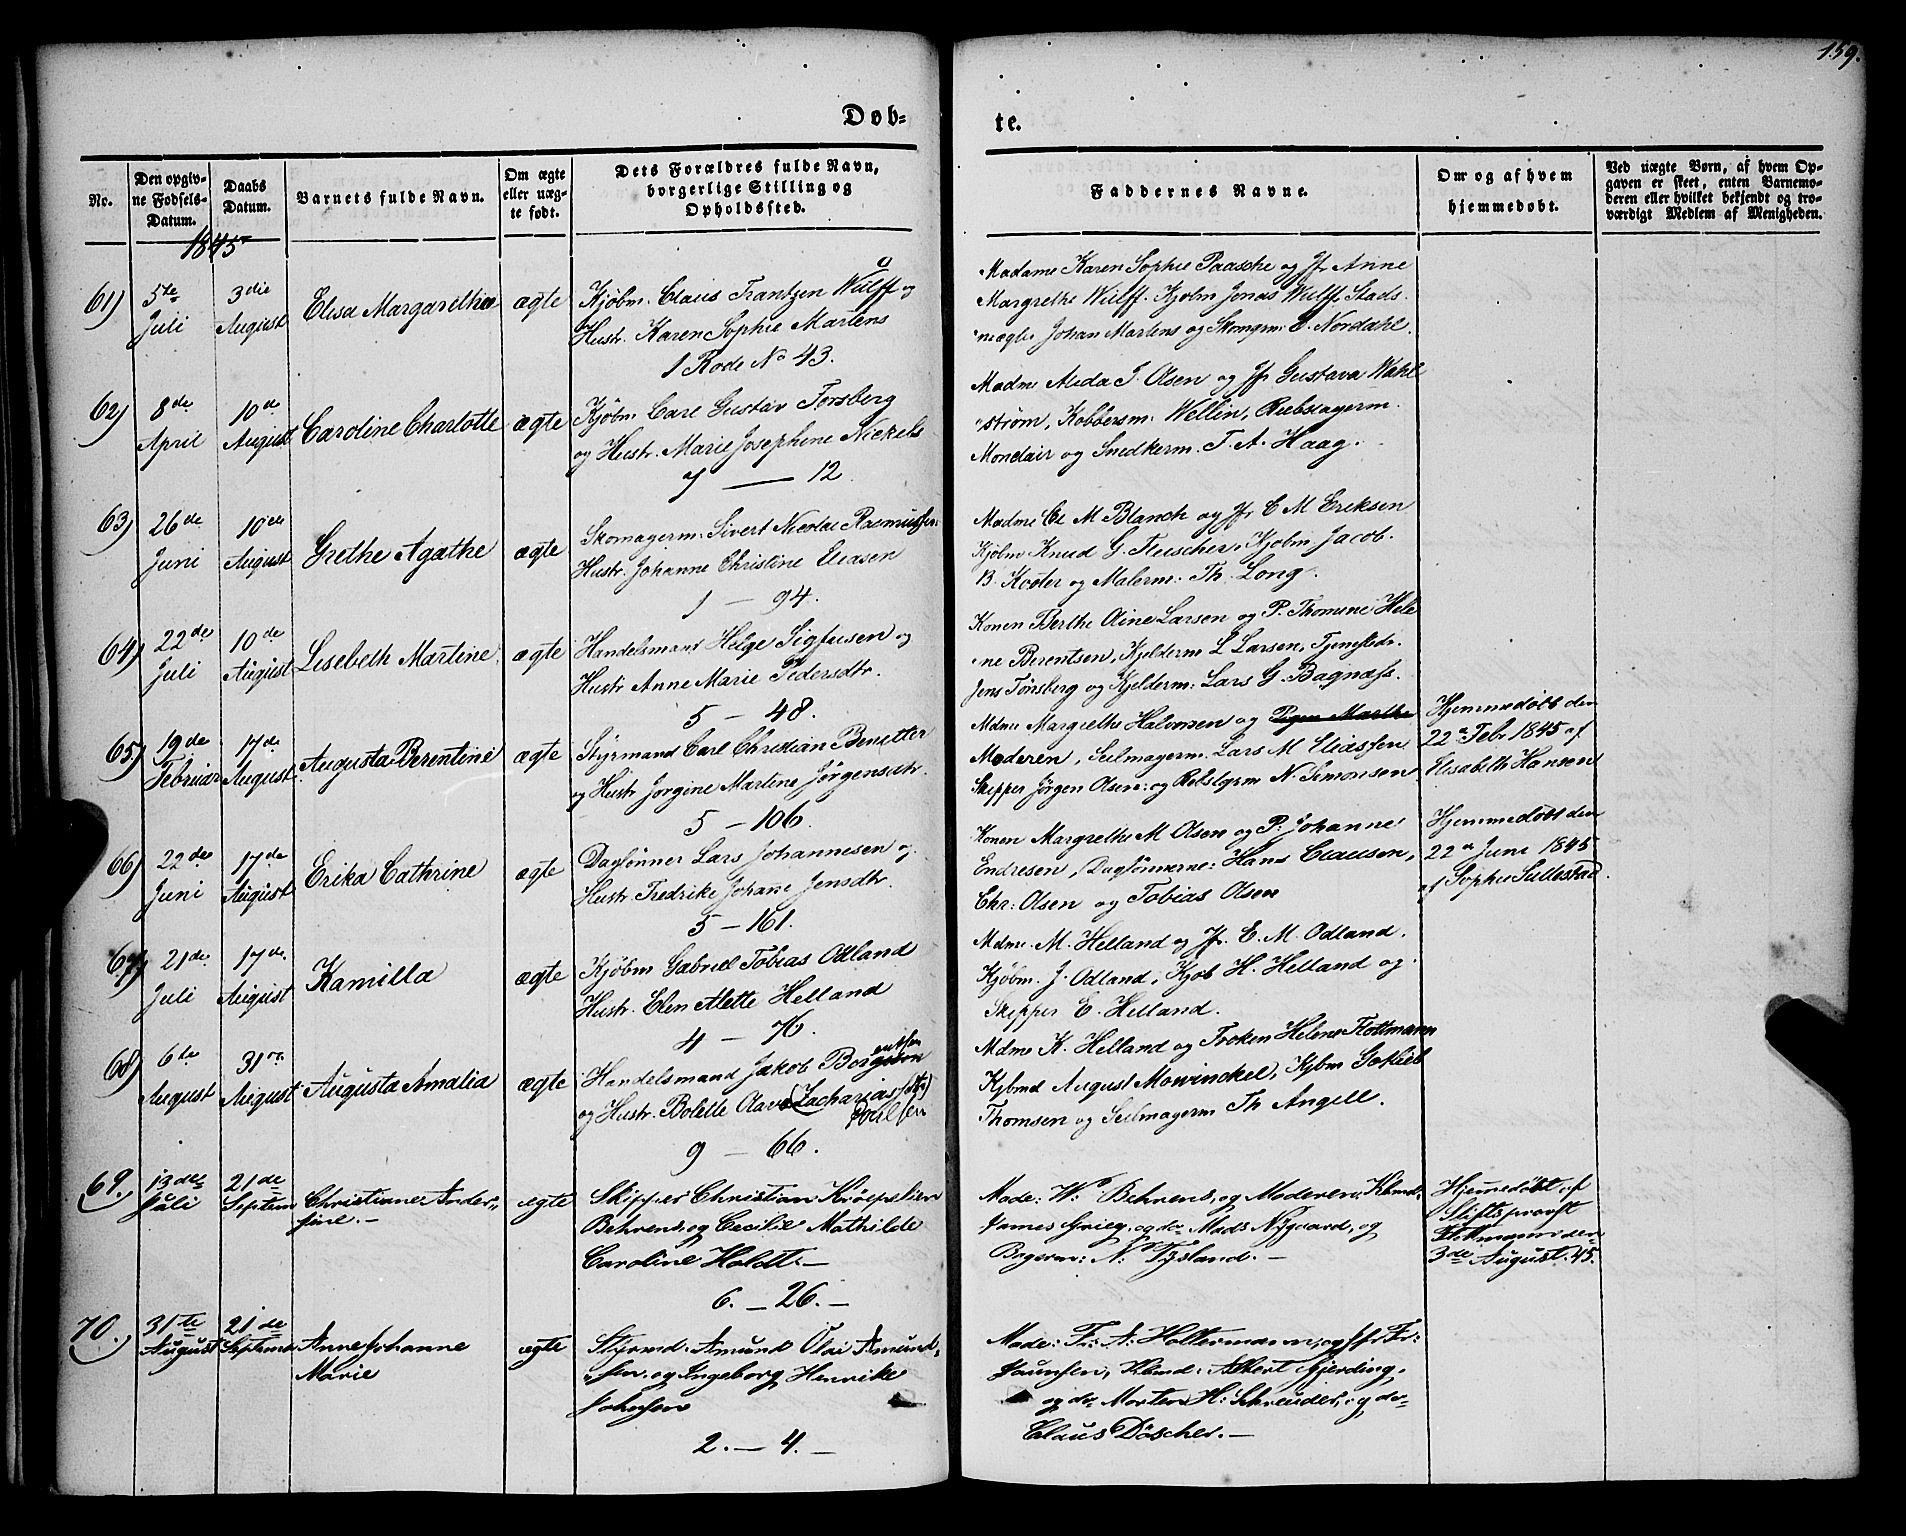 159.
Døb-
te.
No.
Den opgiv-
ne Fødsels-
Datum.
Daabs
Datum.
Barnets fulde Navn.
Om ægte
eller uæg-
te født.
Dets Forældres fulde Navn,
borgerlige Stilling og
Opholdssted.
Faddernes Navne.
Om og af hvem
hjemmedøbt.
Ved uægte Børn, af hvem Op-
gaven er skeet, enten Barnemo-
deren eller hvilket bekjendt og tro-
værdigt Medlem af Menigheden.
1845
61) 5te Juli
3die August
Elisa Margaretha
ægte
Kjøbm. Claus Frantzen Wulff og
Hustr. Karen Sophie Martens
1 Rode No 43.
Madame Karen Sophie Paasche og Jfr Anne
Margrethe Wulff. Kjøbm Jonas Wulff. Stads-
mægle Johan Martens og Skomgm: E. Nordahl.
62) 8de April
10de August
Caroline Charlotte
ægte
Kjøbm. Carl Gustav Forsberg
og Hustr. Marie Josephine Nickels
7 — 12
Madme Alida J. Olsen og Jfr Gustava Wahl
strøm, Kobbersm. Wellin, Rebslagerm.
Mondair og Snedkerm. T. A. Haag.
63) 26de Juni
10de August
Grethe Agathe
ægte
Skomagerm: Sivert Nicolai Rasmussen
Hustr. Johanne Christine Eliasen
1 — 94.
Madme Cl M Blanch og Jfr C M Eriksen
Kjøbm Knud G. Fleischer, Kjøbm Jacob
B. Koster og Malerm. Th. Long.
64) 22de Juli
10de August
Lisebeth Martine
ægte
Handelsmand Helge Sigfusen og
Hustr Anne Marie Pedersdtr.
5 — 48.
Konen Berthe Oline Larsen og P. Thomine Hele
ne Berentsen, Kjelderm L Larsen, Tjenestedr.
Jens Tørsberg og Kjelderm: Lars G. Bagnæss.
65) 19de Februar
17de August
Augusta Berentine
ægte
Styrmand Carl Christian Benetter
og Hustr Jørgine Martine Jørgensdtr.
5 — 106.
Mdme Margrethe Halvorsen og Pigen Marthe
Moderen, Seilmagerm. Lars M Eliassen
Skipper Jørgen Olsen: og Rebslgrm N. Simonsen
Hjemmedøbt den
22de Febr 1845 af
Elisabeth Hansen
66) 22de Juni
17de August
Erika Cathrine
ægte
Daglønner Lars Johannesen og
Hustr. Fredrike Johane Jensdtr.
5 — 161.
Konen Margrethe M Olsen og P. Johanne
Endresen, Dagløннerne: Hans Clausen,
Chr: Olsen og Tobias Olsen
Hjemmedøbt den
22de Juni 1845
af Sophie Sullestad.
67) 21de Juli
17de August
Kamilla
ægte
Kjøbm Gabriel Tobias Odland
Hustr. Elen Alette Helland
4 — 76.
Mdme. M. Helland og Jfr. E. M. Odland.
Kjøbm. J. Odland, Kjøb H. Helland og
Skipper E. Helland.
68) 6te August
31te August
Augusta Amalia
ægte
Handelsmand Jakob Borgen
og Hustr. Bolette Olava (Zachariasdtr)
Poulsen
9 — 66.
Mdme K. Helland og Frøken Helene Flottmann
Kjbmd August Mowinckel, Kjbm Gotlieb
Thomsen og Seilmagerm Th Angell.
69.) 13de Juli
21de Septem
Christiane Ander-
sine. —
ægte
Skipper Christian Krøepelien
Behrens, og Cecilie Mathilde
Caroline Holdt. —
6. — 26. —
Made: W. Behrens, og Moderen: Kbmd.
James Grieg, og do Mads Nygaard, og
Bagerm: N. Tysland. —
Hjemedøbt af
Stiftsprovst
den
3de August. 45.
70.) 31te August
21de Septemb
Anne Johanne
Marie
ægte
Styrmd. Amund Olai Amund-
sen. og Ingeborg Henrike
Johnsen
2. — 4. —
Made: Fr: A: Holtermann, og Jfr Fr:
Paulsen, Kbmd: Albert Gjerding,
og do Morten H: Schreuder, og do
Claus Döscher. —